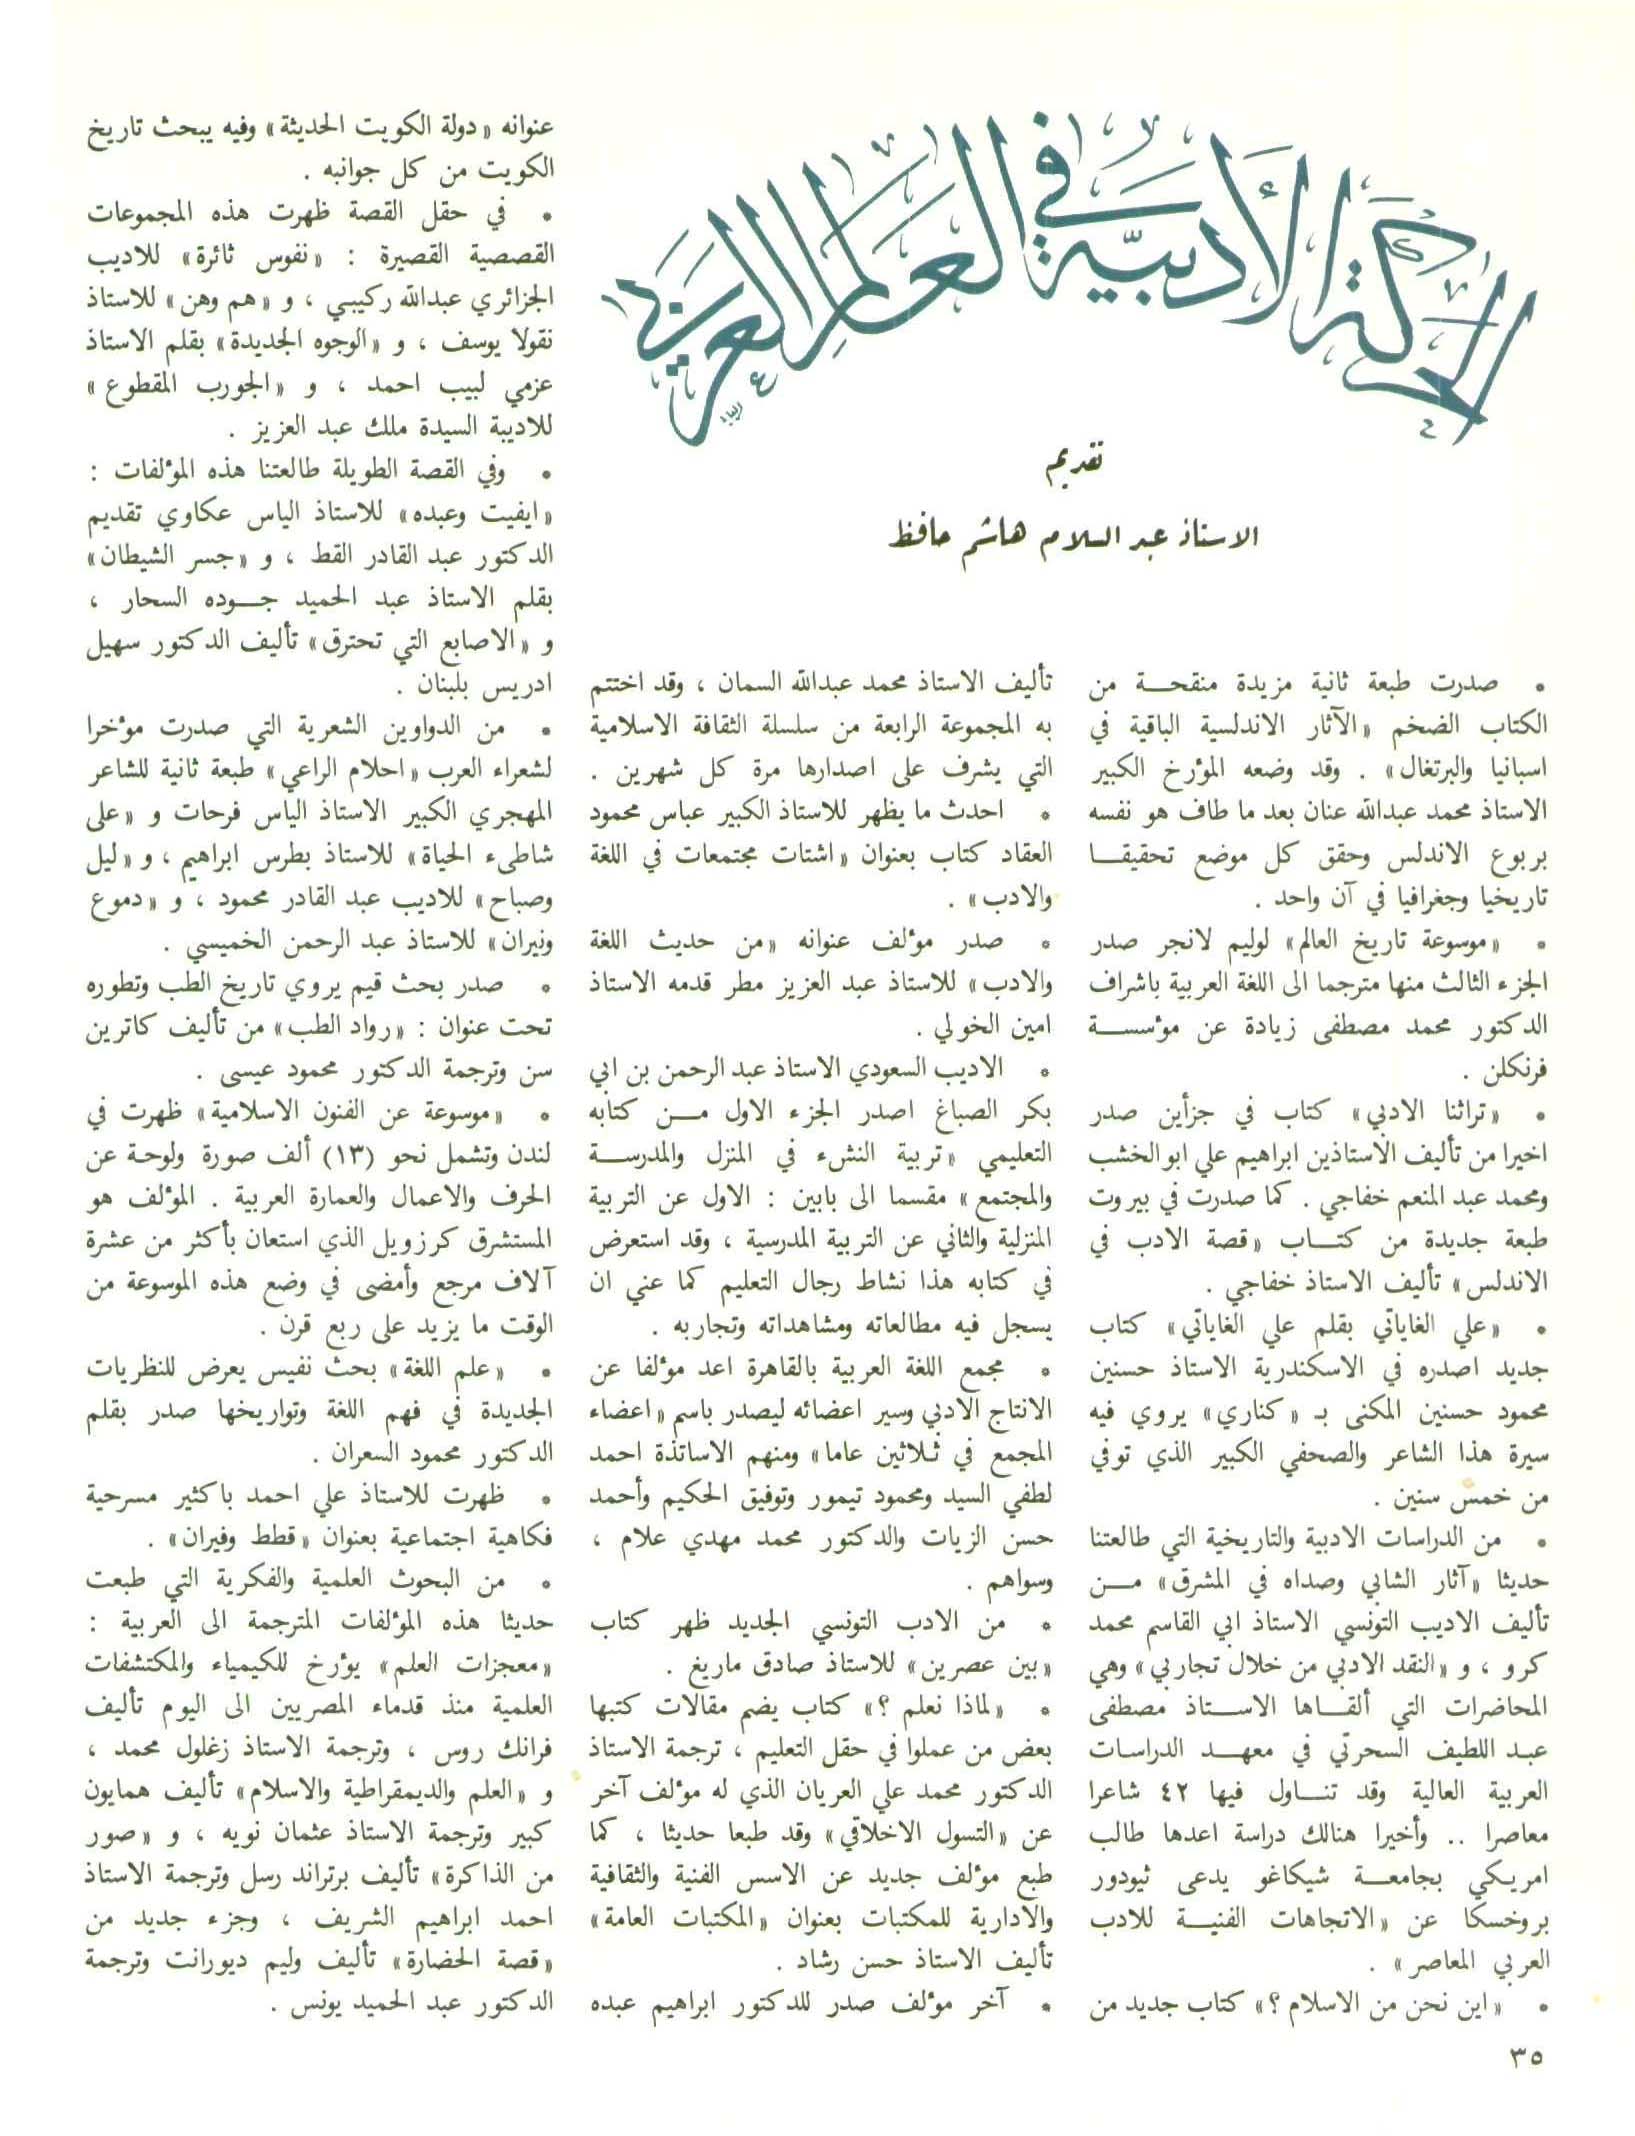 الحركة الأدبية في العالم العربي
تقديم
الاستاذ عبد السلام هاشم حافظ
• صدرت طبعة ثانية مزيدة منقحة من
الكتاب الضخم «الآثار الاندلسية الباقية في
اسبانيا والبرتغال» . وقد وضعه المؤرخ الكبير
الاستاذ محمد عبدالله عنان بعد ما طاف هو نفسه
بربوع الاندلس وحقق كل موضع تحقيقا
تاريخيا وجغرافيا في آن واحد .
• «موسوعة تاريخ العالم» لوليم لانجر صدر
الجزء الثالث منها مترجما الى اللغة العربية باشراف
الدكتور محمد مصطفى زيادة عن مؤسسة
فرنكلن .
• «تراثنا الادبي» كتاب في جزأين صدر
اخيرا من تأليف الاستاذين ابراهيم علي ابو الخشب
ومحمد عبد المنعم خفاجي . كما صدرت في بيروت
طبعة جديدة من كتاب «قصة الادب في
الاندلس» تأليف الاستاذ خفاجي .
• «علي الغاياتي بقلم علي الغاياتي» كتاب
جديد اصدره في الاسكندرية الاستاذ حسنين
محمود حسنين المكنى بـ «كناري» يروي فيه
سيرة هذا الشاعر والصحفي الكبير الذي توفي
من خمس سنين .
• من الدراسات الادبية والتاريخية التي طالعتنا
حديثا «آثار الشابي وصداه في المشرق» من
تأليف الاديب التونسي الاستاذ ابي القاسم محمد
كرو ، و «النقد الادبي من خلال تجاربي» وهي
المحاضرات التي ألقاها الاستاذ مصطفى
عبد اللطيف السحرتي في معهد الدراسات
العربية العالية وقد تناول فيها ٤٢ شاعرا
معاصرا .. وأخيرا هنالك دراسة اعدها طالب
امريكي بجامعة شيكاغو يدعى ثيودور
بروخسكا عن «الاتجاهات الفنية للادب
العربي المعاصر» .
• «اين نحن من الاسلام ؟» كتاب جديد من
تأليف الاستاذ محمد عبدالله السمان ، وقد اختتم
به المجموعة الرابعة من سلسلة الثقافة الاسلامية
التي يشرف على اصدارها مرة كل شهرين .
• احدث ما يظهر للاستاذ الكبير عباس محمود
العقاد كتاب بعنوان «اشتات مجتمعات في اللغة
والادب» .
• صدر مؤلف عنوانه «من حديث اللغة
والادب» للاستاذ عبد العزيز مطر قدمه الاستاذ
امين الخولي .
• الاديب السعودي الاستاذ عبد الرحمن بن ابي
بكر الصباغ اصدر الجزء الاول من كتابه
التعليمي «تربية النشء في المنزل والمدرسة
والمجتمع» مقسما الى بابين : الاول عن التربية
المنزلية والثاني عن التربية المدرسية ، وقد استعرض
في كتابه هذا نشاط رجال التعليم كما عني ان
يسجل فيه مطالعاته ومشاهداته وتجاربه .
• مجمع اللغة العربية بالقاهرة اعد مؤلفا عن
الانتاج الادبي وسير اعضائه ليصدر باسم «اعضاء
المجمع في ثلاثين عاما» ومنهم الاساتذة احمد
لطفي السيد ومحمود تيمور وتوفيق الحكيم وأحمد
حسن الزيات والدكتور محمد مهدي علام ،
وسواهم .
• من الادب التونسي الجديد ظهر كتاب
«بين عصرين» للاستاذ صادق ماريغ .
• «لماذا نعلم ؟» كتاب يضم مقالات كتبها
بعض من عملوا في حقل التعليم ، ترجمة الاستاذ
الدكتور محمد علي العريان الذي له مؤلف آخر
عن «التسول الاخلاقي» وقد طبعا حديثا ، كما
طبع مؤلف جديد عن الاسس الفنية والثقافية
والادارية للمكتبات بعنوان «المكتبات العامة»
تأليف الاستاذ حسن رشاد .
• آخر مؤلف صدر للدكتور ابراهيم عبده
عنوانه «دولة الكويت الحديثة» وفيه يبحث تاريخ
الكويت من كل جوانبه .
• في حقل القصة ظهرت هذه المجموعات
القصصية القصيرة : «نفوس ثائرة» للاديب
الجزائري عبدالله ركيبي ، و «هم وهن» للاستاذ
نقولا يوسف ، و «الوجوه الجديدة» بقلم الاستاذ
عزمي لبيب احمد ، و «الجورب المقطوع»
للاديبة السيدة ملك عبد العزيز .
• وفي القصة الطويلة طالعتنا هذه المؤلفات :
«ايفيت وعبده» للاستاذ الياس عكاوي تقديم
الدكتور عبد القادر القط ، و «جسر الشيطان»
بقلم الاستاذ عبد الحميد جوده السحار ،
و «الاصابع التي تحترق» تأليف الدكتور سهيل
ادريس بلبنان .
• من الدواوين الشعرية التي صدرت مؤخرا
لشعراء العرب «احلام الراعي» طبعة ثانية للشاعر
المهجري الكبير الاستاذ الياس فرحات و «على
شاطىء الحياة» للاستاذ بطرس ابراهيم ، و «ليل
وصباح» للاديب عبد القادر محمود ، و «دموع
ونيران» للاستاذ عبد الرحمن الخميسي .
• صدر بحث قيم يروي تاريخ الطب وتطوره
تحت عنوان : «رواد الطب» من تأليف كاترين
سن وترجمة الدكتور محمود عيسى .
• «موسوعة عن الفنون الاسلامية» ظهرت في
لندن وتشمل نحو (١٣) ألف صورة ولوحة عن
الحرف والاعمال والعمارة العربية . المؤلف هو
المستشرق كرزويل الذي استعان بأكثر من عشرة
آلاف مرجع وأمضى في وضع هذه الموسوعة من
الوقت ما يزيد على ربع قرن .
• «علم اللغة» بحث نفيس يعرض للنظريات
الجديدة في فهم اللغة وتواريخها صدر بقلم
الدكتور محمود السعران .
• ظهرت للاستاذ علي احمد باكثير مسرحية
فكاهية اجتماعية بعنوان «قطط وفيران» .
• من البحوث العلمية والفكرية التي طبعت
حديثا هذه المؤلفات المترجمة الى العربية :
«معجزات العلم» يؤرخ للكيمياء والمكتشفات
العلمية منذ قدماء المصريين الى اليوم تأليف
فرانك روس ، وترجمة الاستاذ زغلول محمد ،
و «العلم والديمقراطية والاسلام» تأليف همايون
كبير وترجمة الاستاذ عثمان نويه ، و «صور
من الذاكرة» تأليف برتراند رسل وترجمة الاستاذ
احمد ابراهيم الشريف ، وجزء جديد من
«قصة الحضارة» تأليف وليم ديورانت وترجمة
الدكتور عبد الحميد يونس .
٣٥